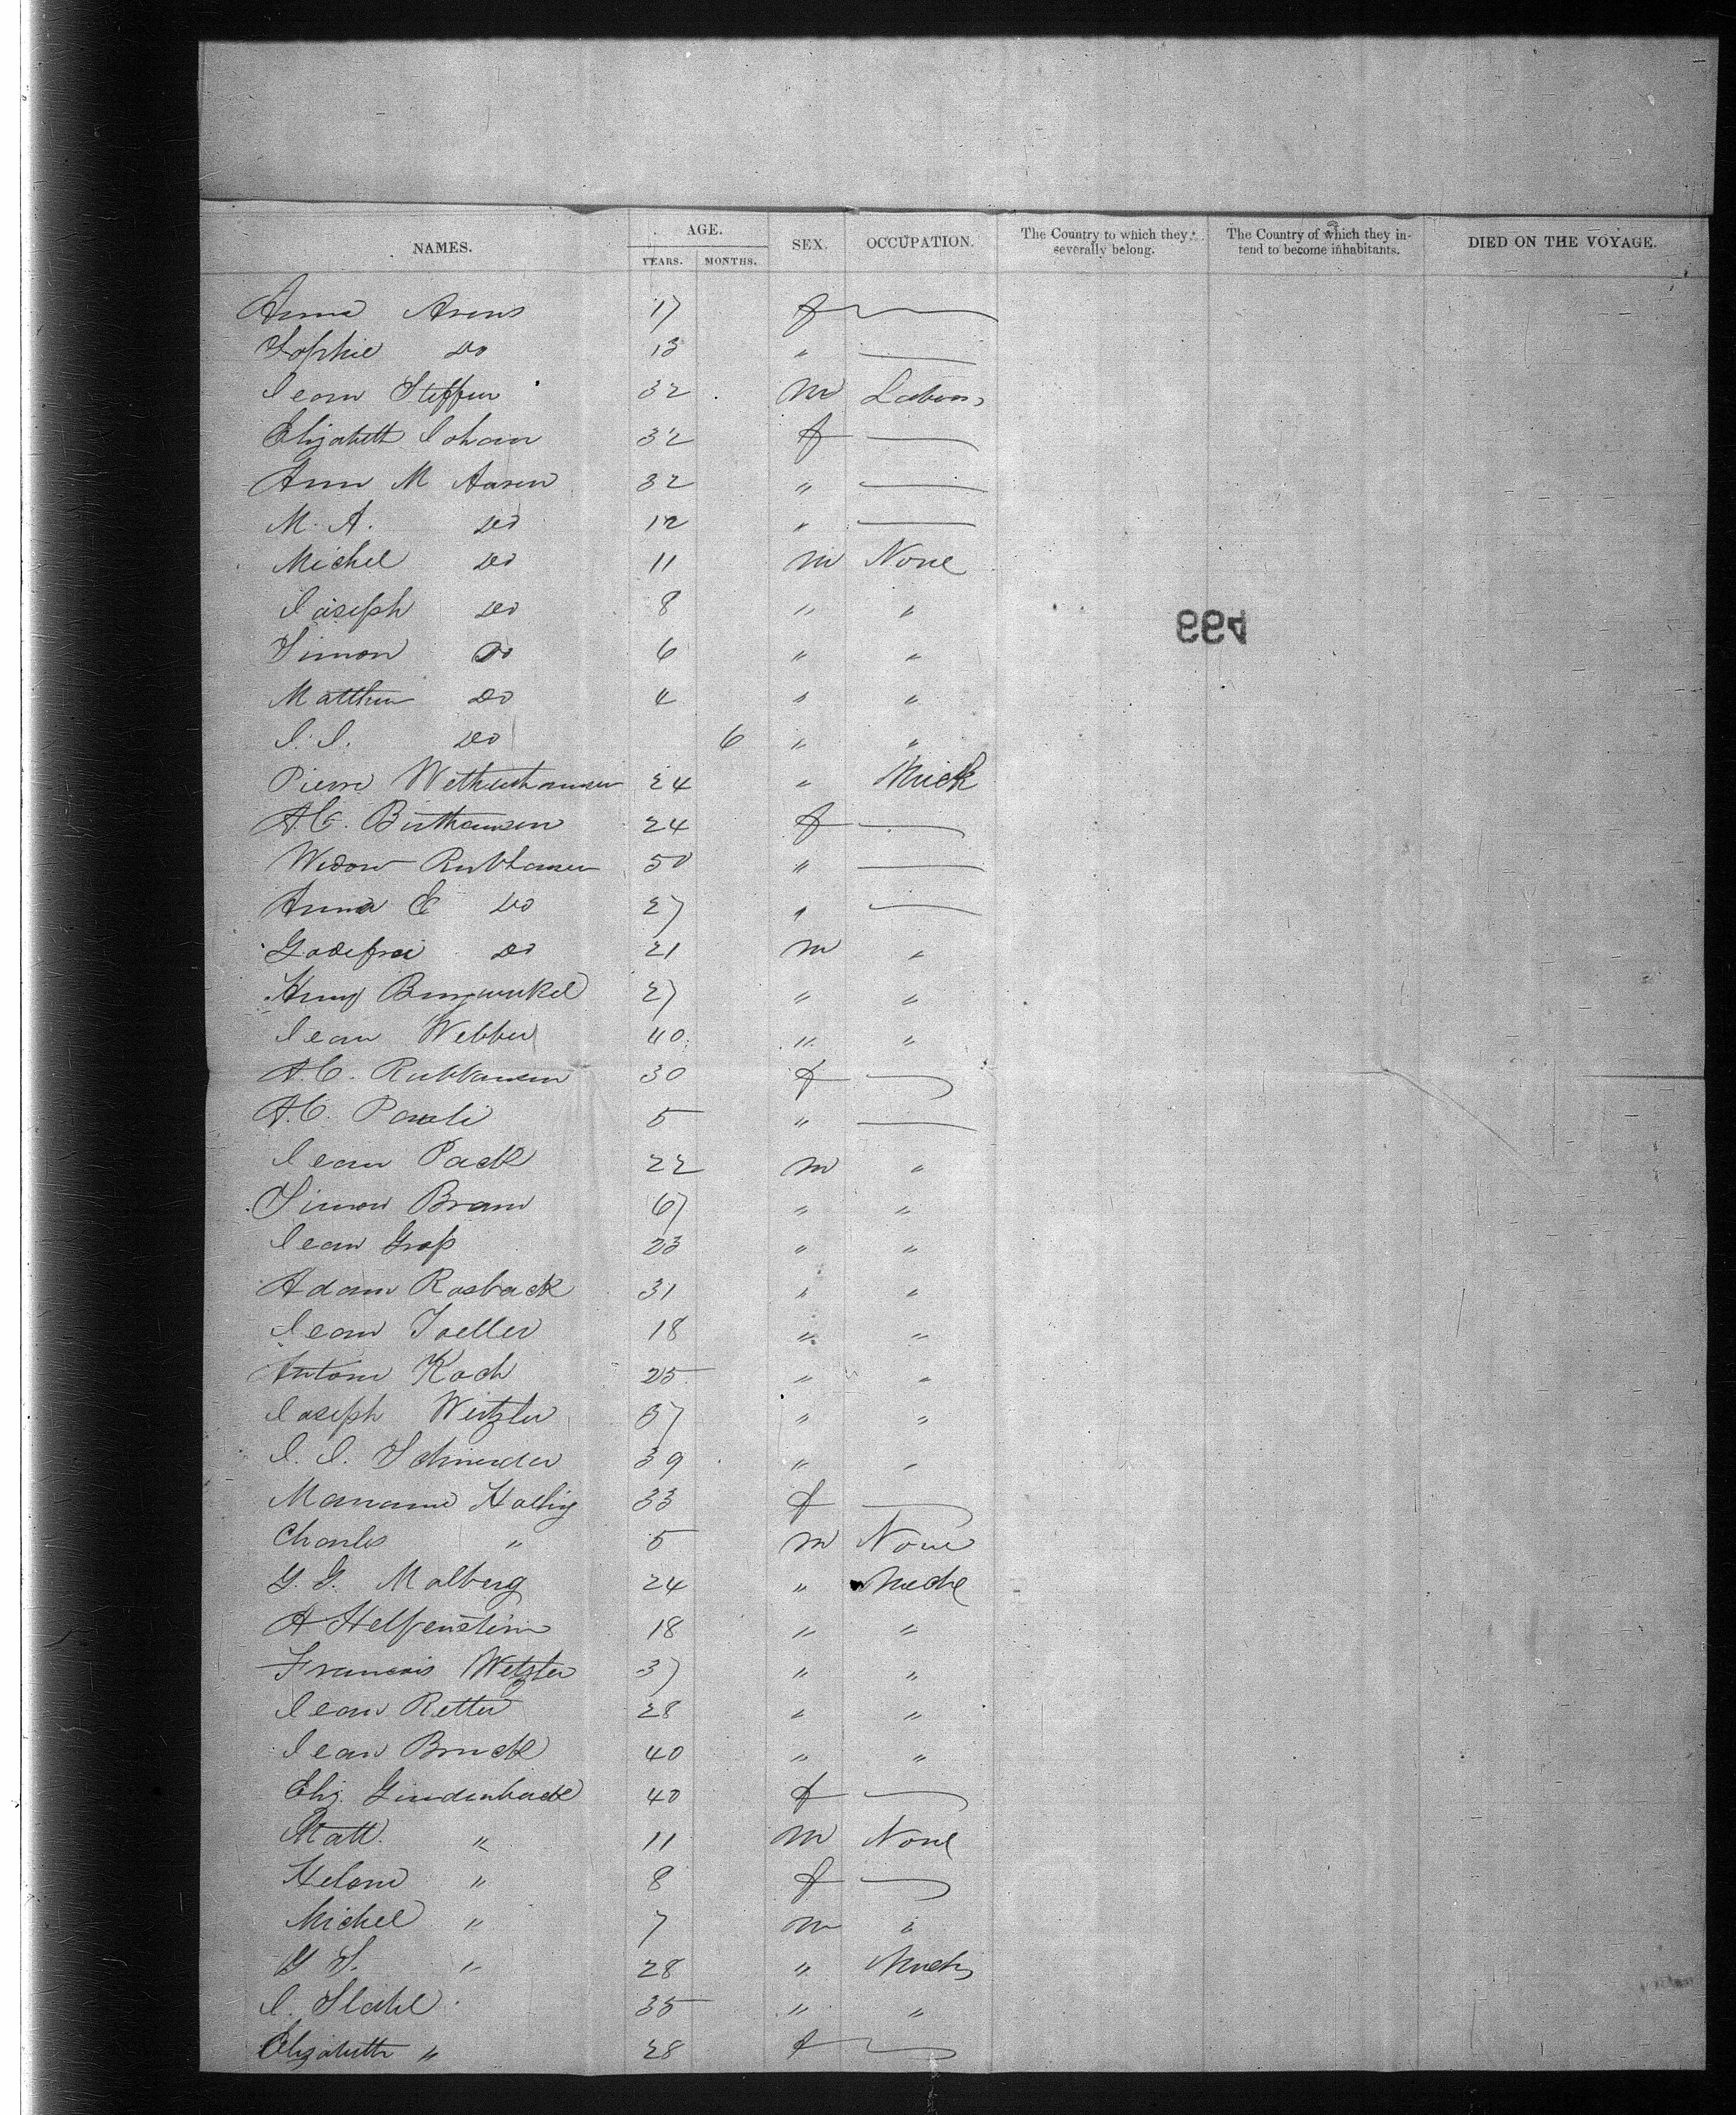 NAMES. AGE. YEARS. MONTHS. SEX. OCCUPATION. The Country to which they severally belong. The Country of which they intend to become inhabitants. DIED ON THE VOYAGE.
Anna Arens 17 f —
Sophie Do 13 " —
Jean Steffen 32 m Labor
Elizabeth Johann 32 f —
Ann M Aaren 32 " —
M. A. Do 12 " —
Michel Do 11 m None
Joseph Do 8 " "
Simon Do 6 " "
Matthew Do 4 " "
J. J. Do 6 " "
664
Pierre 24 "
A. C. 24 f —
Widow 50 " —
Anna C Do 27 " —
Godefroi Do 21 m "
27 " "
Jean Webber 40 " "
A. C. 30 f —
A. C. Pauli 5 " —
Jean Pack 22 m "
Simon Bram 67 " "
Jean Groß 23 " "
Adam Rosback 31 " "
Jean Toeller 18 " "
Antoin Koch 25 " "
Joseph Wetzler 37 " "
J. J. Schneider 39 " "
33 f —
Charles " 5 m None
G. G. Malberg 24 " Meche
A Helfenstein 18 " "
Francois Wetzler 37 " "
Jean Retter 28 " "
Jean Bruck 40 " "
Eliz. 40 f —
Matt. " 11 m None
Helene " 8 f —
Michel " 7 m "
" 28 "
J. Stahl 35 " "
Elizabeth " 28 f —